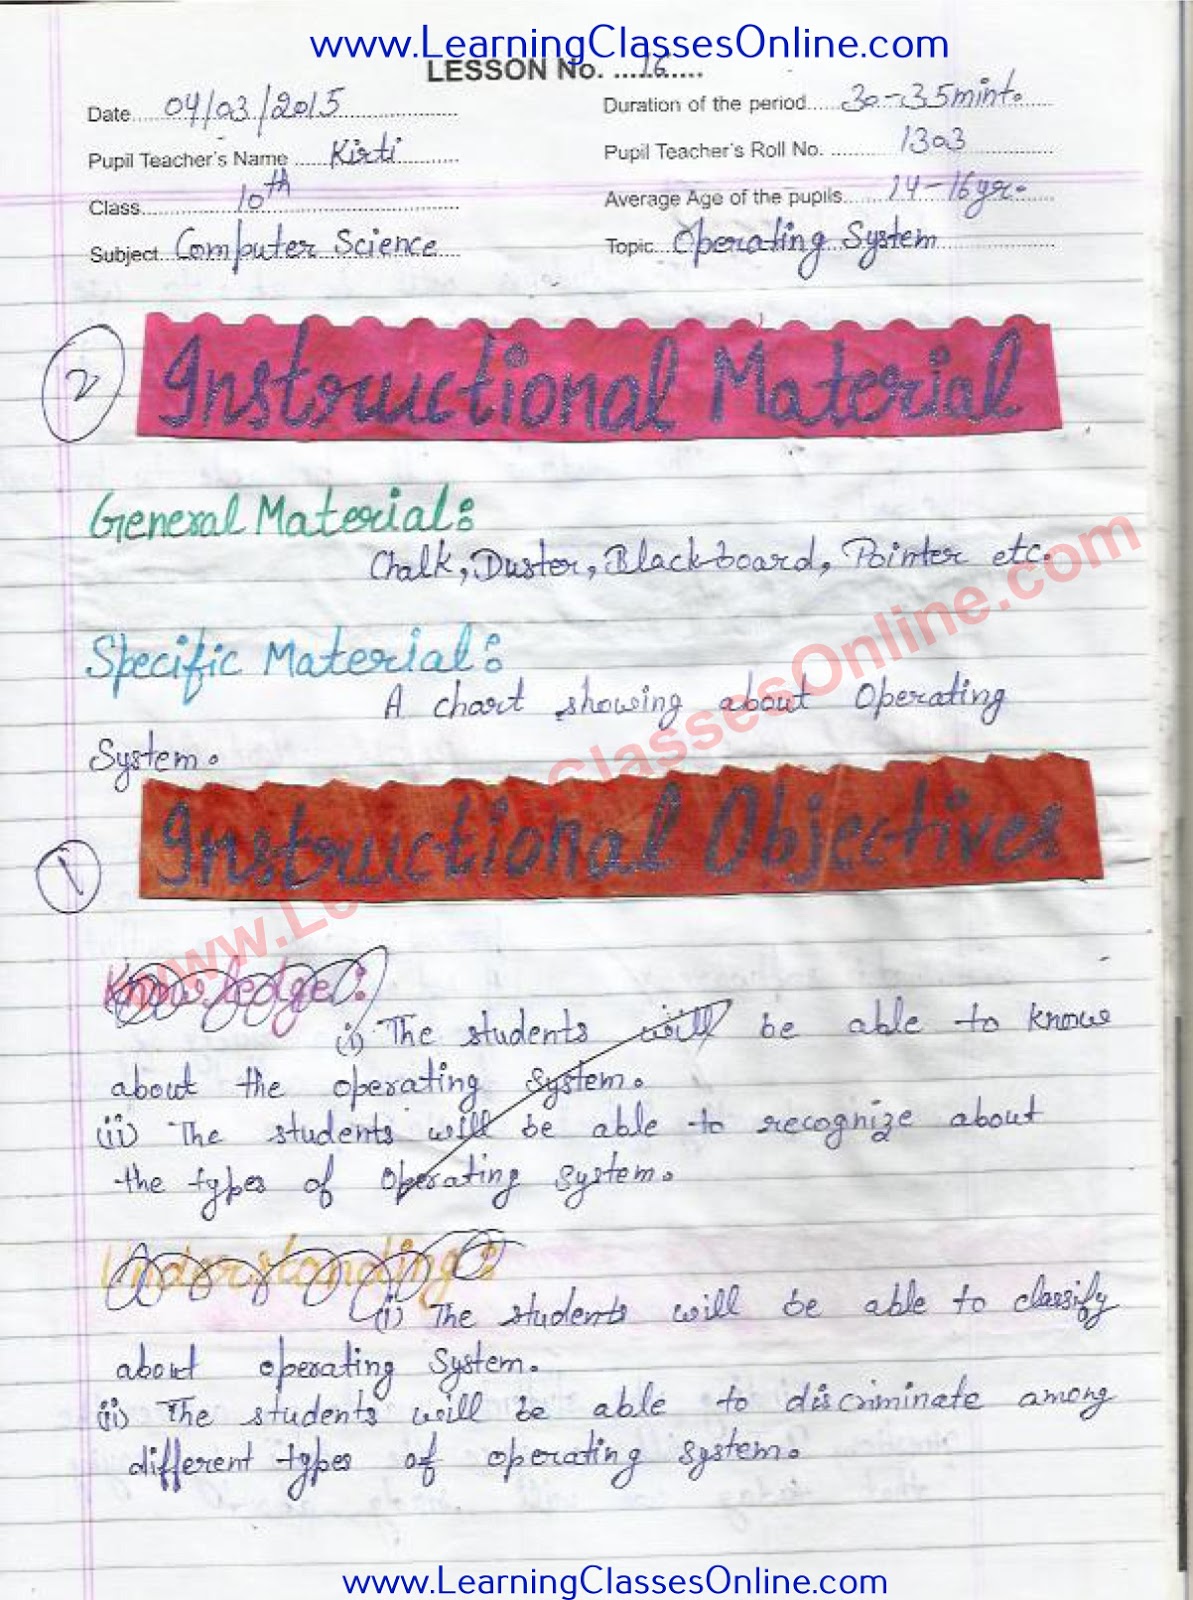 www.LearningClassesOnline.com
LESSON No. ....16....
Date 04/03/2015
Duration of the period 30-35mint.
Pupil Teacher's Name Kirti
Pupil Teacher's Roll No. 1303
Class 10th
Average Age of the pupils 14-16yr.
Subject Computer Science
Topic Operating System
2
Instructional Material
General Material:
Chalk, Duster, Blackboard, Pointer etc.
Specific Material:
A chart showing about Operating
System.
1
Instructional Objectives
www.LearningClassesOnline.com
Knowledge:
(i) The students will be able to know
about the operating system.
(ii) The students will be able to recognize about
the types of operating system.
Understanding:
(i) The students will be able to classify
about operating system.
(ii) The students will be able to discriminate among
different types of operating system.
www.LearningClassesOnline.com